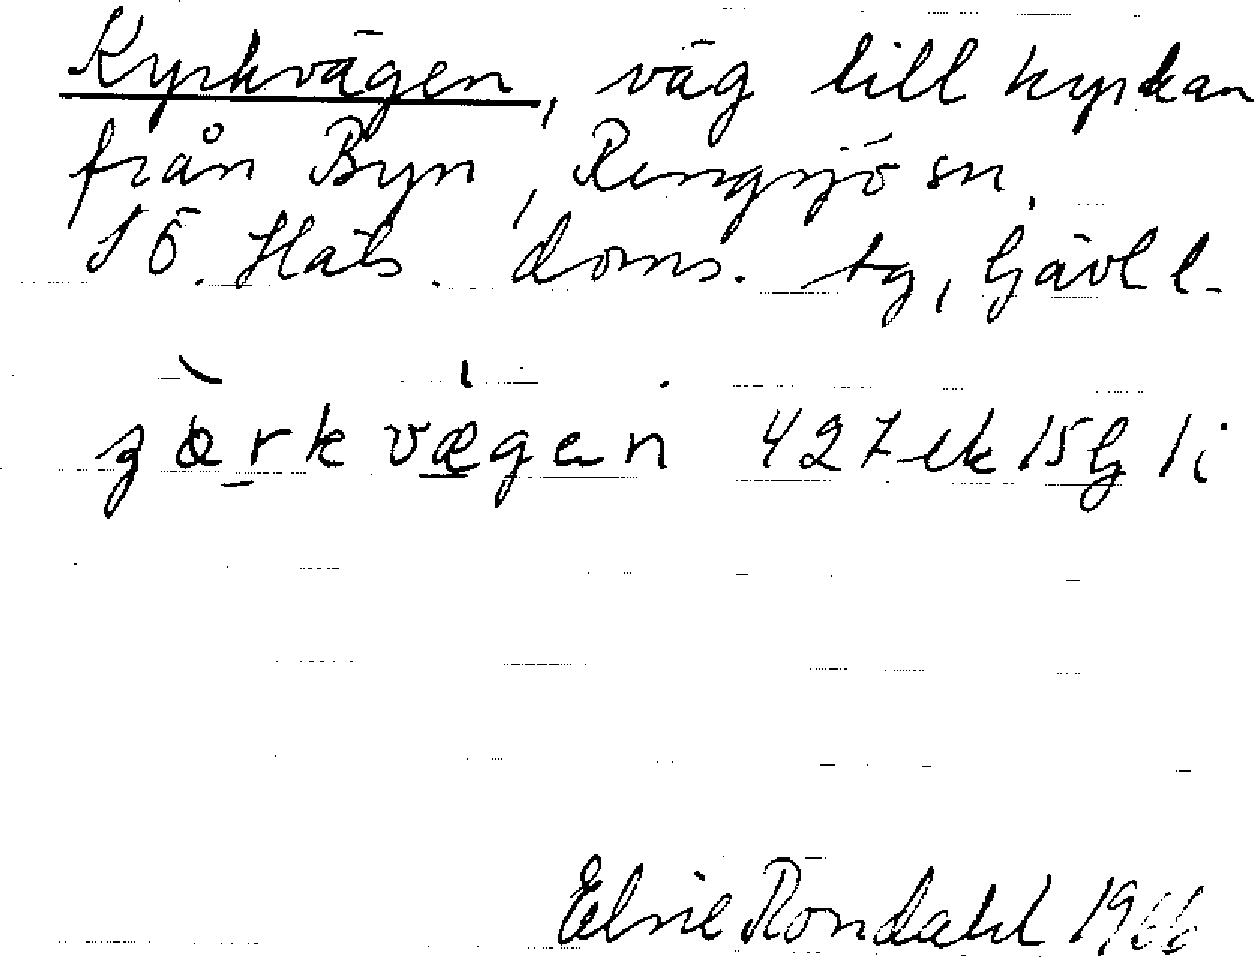 Kyrkvägen, väg till kyrkan
från Byn, Rengsjö sn,
S Ö. Häls. doms. tg, Gävl l.
vägen 427 ek 15
Elsie Röndahl 1966